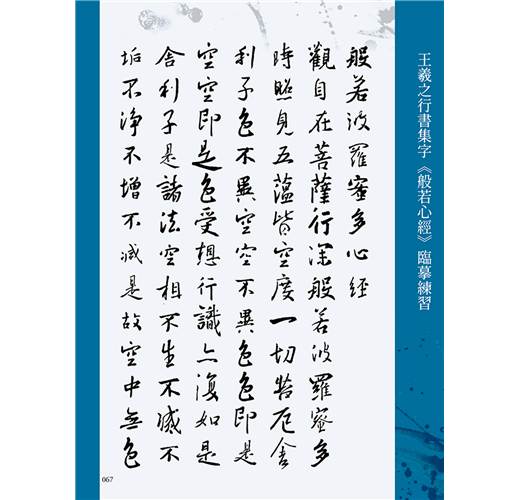 王羲之行書集字《般若心經》臨摹練習
般若波羅蜜多心經
觀自在菩薩行深般若波羅蜜多
時照見五蘊皆空度一切苦厄舍
利子色不異空空不異色色即是
空空即是色受想行識亦復如是
舍利子是諸法空相不生不滅不
垢不淨不增不減是故空中無色
067